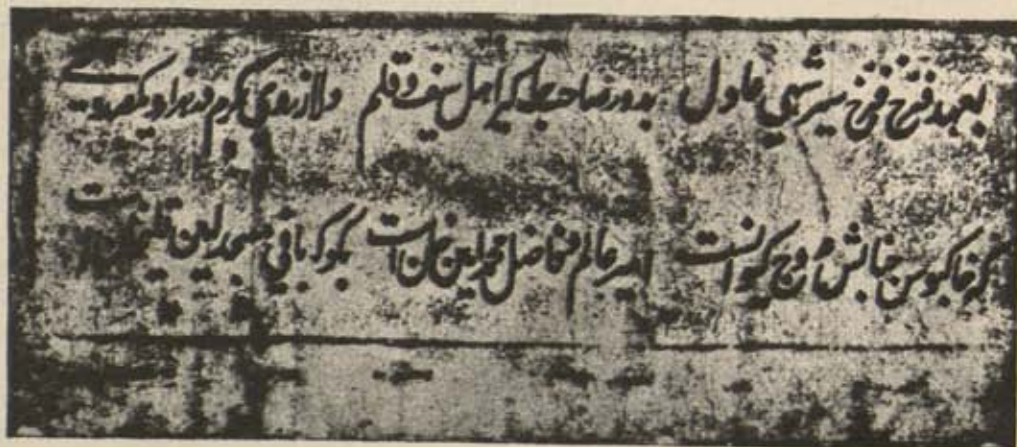 بعهد فرخ فرخ سیر شهی عادل بدور صاحب جاگیر اهل سیف و قلم دلا ز روی کرم در هزار و یکصد و سی
که خاکبوس جنابش عروج کیوانست امیر عالم فاضل محمد امین خان است بگو که بانی مسجد امین